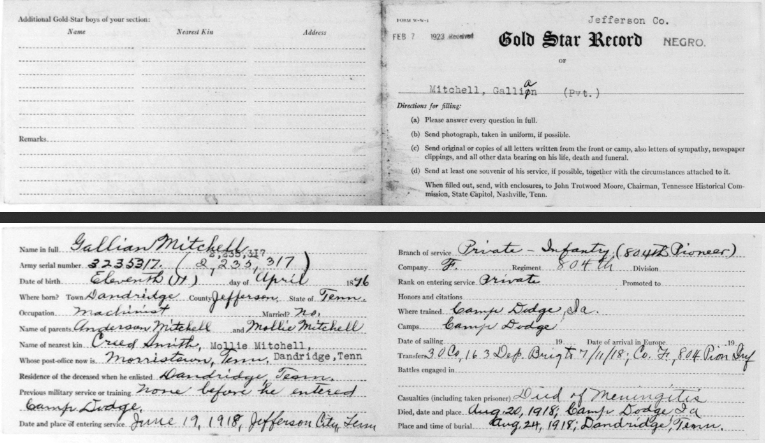 Additional Gold-Star boys of your section:
Name Nearest Kin Address
Remarks
Jefferson Co.
FEB 7 1923 Received
Gold Star Record NEGRO.
OF
Mitchell, Gallian (Pvt.)
a
Directions for filling:
(a) Please answer every question in full.
(b) Send photograph, taken in uniform, if possible.
(c) Send original or copies of all letters written from the front or camp, also letters of sympathy, newspaper
clippings, and all other data bearing on his life, death and funeral.
(d) Send at least one souvenir of his service, if possible, together with the circumstances attached to it.
When filled out, send, with enclosures, to John Trotwood Moore, Chairman, Tennessee Historical Com-
mission, State Capitol, Nashville, Tenn.
Name in full Gallian Mitchell
2,235,317
Army serial number 3235317. (2,235,317)
Date of birth Eleventh (11) day of April 1896
Where born? Town Dandridge County Jefferson, State of Tenn.
Occupation machinist Married? No.
Name of parents Anderson Mitchell and Mollie Mitchell
Name of nearest kin Creed Smith, Mollie Mitchell,
Whose post office now is Morristown, Tenn, Dandridge, Tenn
Residence of the deceased when he enlisted Dandridge, Tenn.
Previous military service or training None before he entered
Camp Dodge.
Date and place of entering service June 19, 1918, Jefferson City, Tenn
Branch of service Private - Infantry (804th Pioneer)
Company F. Regiment 804th Division
Rank on entering service Private Promoted to
Honors and citations
Where trained Camp Dodge, Ia.
Camps Camp Dodge
Date of sailing 19 Date of arrival in Europe 19
Transfers 30 Co, 163 Dep. Brig to 7/11/18; Co. F, 804 Pion Inf
Battles engaged in
Casualties (including taken prisoner) Died of Meningitis
Died, date and place Aug 20, 1918; Camp Dodge Ia
Place and time of burial Aug 24, 1918; Dandridge, Tenn.